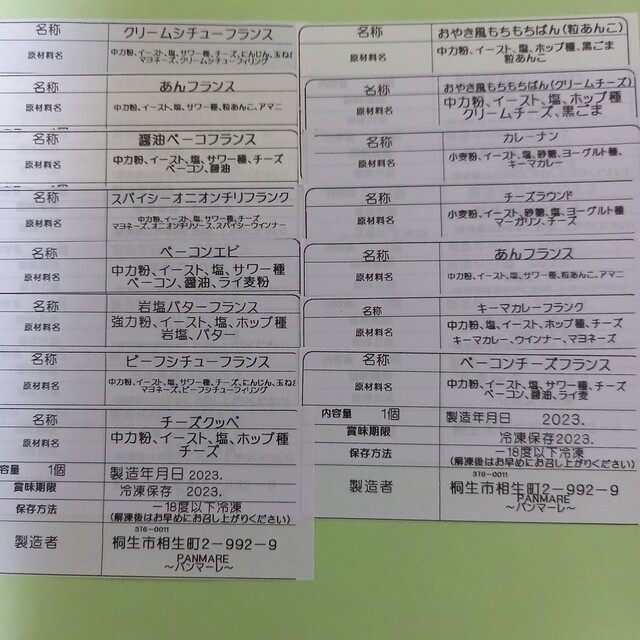 名称 クリームシチューフランス
原材料名 中力粉、イースト、塩、サワー種、チーズ、にんじん、玉ね
マヨネーズ、クリームシチューフィリング
名称 あんフランス
原材料名 中力粉、イースト、塩、サワー種、粒あんこ、アマニ
名称 醤油ベーコフランス
原材料名 中力粉、イースト、塩、サワー種、チーズ
ベーコン、醤油
名称 スパイシーオニオンチリフランク
原材料名 中力粉、イースト、塩、サワー種、チーズ
マヨネーズ、オニオンチリソース、スパイシーウインナー
名称 ベーコンエピ
原材料名 中力粉、イースト、塩、サワー種
ベーコン、醤油、ライ麦粉
名称 岩塩バターフランス
原材料名 強力粉、イースト、塩、ホップ種
岩塩、バター
名称 ビーフシチューフランス
原材料名 中力粉、イースト、塩、サワー種、チーズ、にんじん、玉ね
マヨネーズ、ビーフシチューフィリング
名称 チーズクッペ
原材料名 中力粉、イースト、塩、ホップ種
チーズ
容量 1個 製造年月日 2023.
賞味期限 冷凍保存 2023.
保存方法 −18度以下冷凍
(解凍後はお早めにお召し上がりください)
3T6-0011
製造者 桐生市相生町2−992−9
PANMARE
〜パンマーレ〜
名称 おやき風もちもちぱん(粒あんこ)
原材料名 中力粉、イースト、塩、ホップ種、黒ごま
粒あんこ
名称 おやき風もちもちぱん(クリームチーズ)
原材料名 中力粉、イースト、塩、ホップ種
クリームチーズ、黒ごま
名称 カレーナン
原材料名 小麦粉、イースト、塩、砂糖、ヨーグルト種、
キーマカレー
名称 チーズラウンド
原材料名 小麦粉、イースト、砂糖、塩、ヨーグルト種
マーガリン、チーズ
名称 あんフランス
原材料名 中力粉、イースト、塩、サワー種、粒あんこ、アマニ
名称 キーマカレーフランク
原材料名 中力粉、塩、イースト、ホップ種、チーズ
キーマカレー、ウインナー、マヨネーズ
名称 ベーコンチーズフランス
原材料名 中力粉、イースト、塩、サワー種、チーズ
ベーコン、醤油、ライ麦
内容量 1個 製造年月日 2023.
賞味期限 冷凍保存2023.
保存方法 −18度以下冷凍
(解凍後はお早めにお召し上がりください)
3T6-0011
製造者 桐生市相生町2−992−9
PANMARE
〜パンマーレ〜